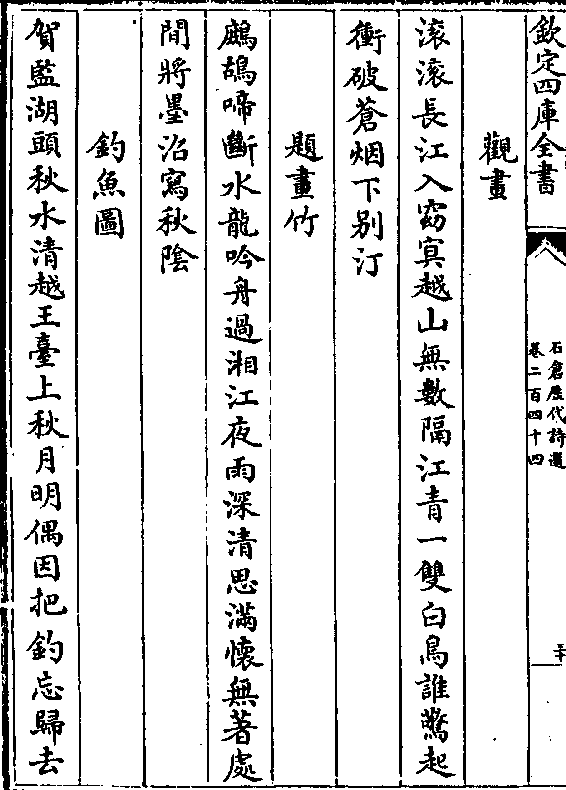 欽定四庫全書
石倉歷代詩選
卷二百四十四
二十
觀畫
滚滚長江入窈冥越山無數隔江青一雙白鳥誰驚起
衝破蒼烟下别汀
題畫竹
鷓鴣啼斷水龍吟舟過湘江夜雨深清思滿懷無著處
間將墨沼寫秋陰
釣魚圖
賀監湖頭秋水清越王臺上秋月明偶因把釣忘歸去